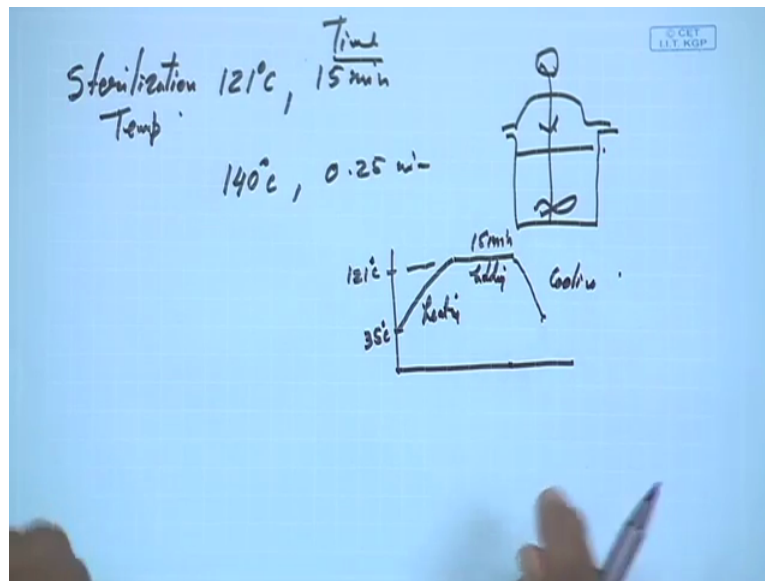 © CET
I.I.T. KGP
Time
Sterilization 121°C, 15 min
Temp
140°C, 0.25 min
15 min
121°C
holding
Cooling
heating
35°C